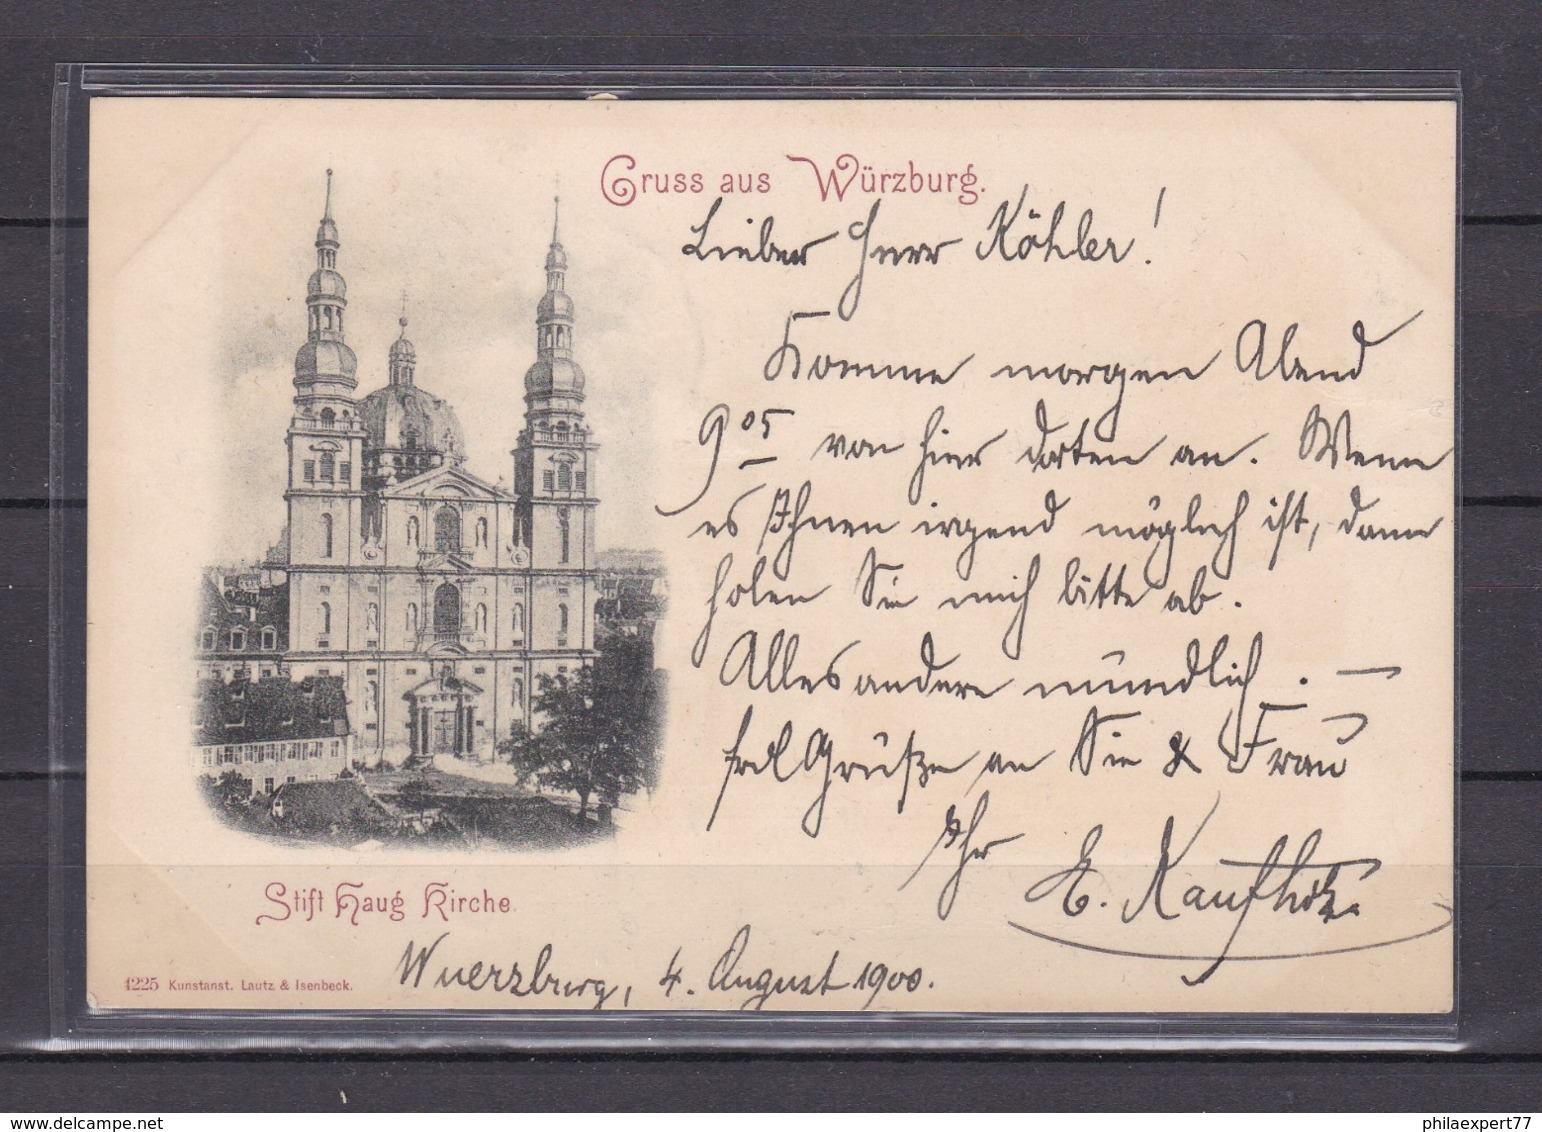 Gruss aus Würzburg.
Lieber Herr Köhler!
Komme morgen Abend
9 05 von hier dorten an. Wenn
es Ihnen irgend möglich ist, dann
holen Sie mich bitte ab.
Alles andere mündlich. —
frdl Grüße an Sie & Frau
Ihr E. Kaufholz.
Stift Haug Kirche.
Wuerzburg, 4. August 1900.
1225 Kunstanst. Lautz & Isenbeck.
philaexpert77
delcampe.net